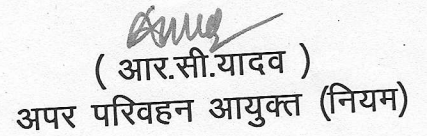 ( आर.सी.यादव )
अपर परिवहन आयुक्त (नियम)